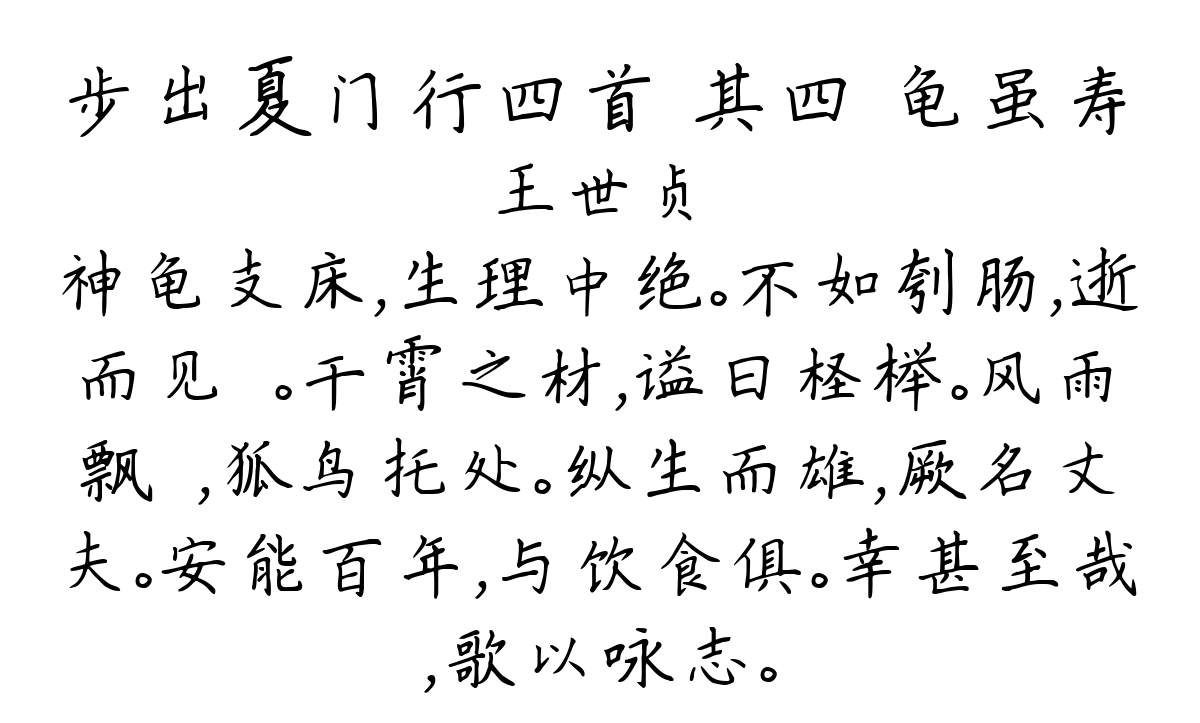 步出夏门行四首 其四 龟虽寿
王世贞
神龟支床,生理中绝。不如刳肠,逝
而见 。干霄之材,谥曰柽榉。风雨
飘 ,狐鸟托处。纵生而雄,厥名丈
夫。安能百年,与饮食俱。幸甚至哉
,歌以咏志。